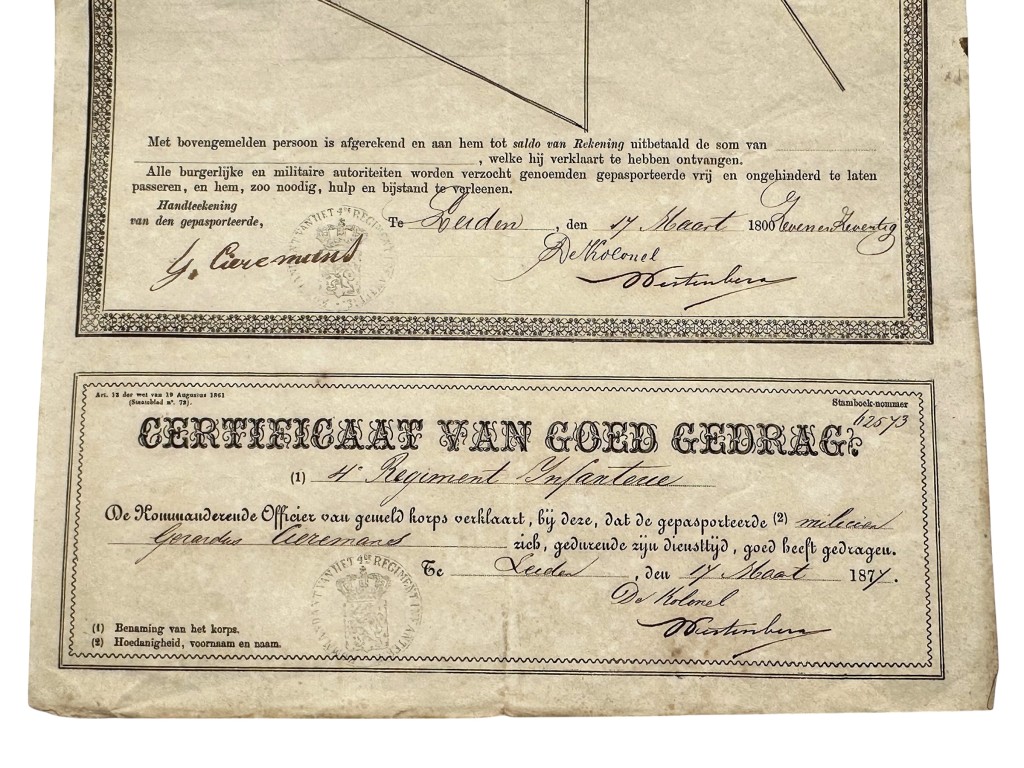 Met bovengemelden persoon is afgerekend en aan hem tot saldo van Rekening uitbetaald de som van
, welke hij verklaart te hebben ontvangen.
Alle burgerlijke en militaire autoriteiten worden verzocht genoemden gepasporteerde vrij en ongehinderd te laten
passeren, en hem, zoo noodig, hulp en bijstand te verleenen.
Handteekening
van den gepasporteerde,
Te Leiden, den 17 Maart 1800 Zeven en Zeventig
G. Cieremans
De Kolonel
Westenberg
Art. 12 der wet van 19 Augustus 1861
(Staatsblad n°. 72).
Stamboek-nommer
62573
CERTIFICAAT VAN GOED GEDRAG.
(1) 4e Regiment Infanterie
De Kommanderende Officier van gemeld korps verklaart, bij deze, dat de gepasporteerde (2) milicien
Gerardus Cieremans zich, gedurende zijn diensttijd, goed heeft gedragen.
Te Leiden, den 17 Maart 1877.
De Kolonel
Westenberg
(1) Benaming van het korps.
(2) Hoedanigheid, voornaam en naam.